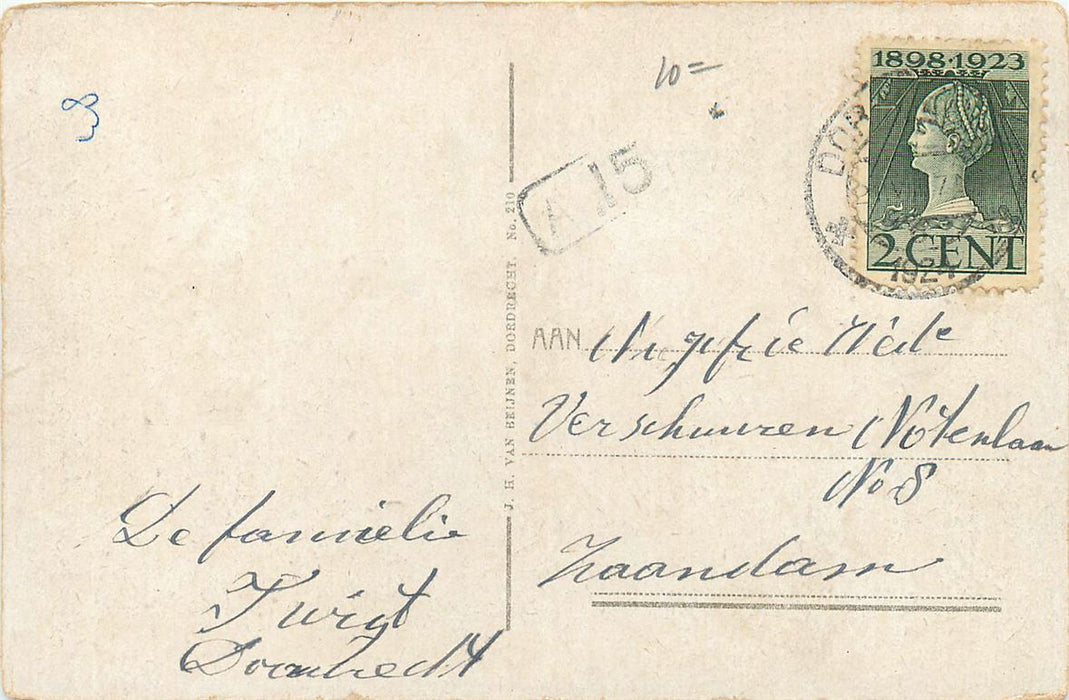 10=
1898·1923
2 CENT
DOR
1924
A 15
J. H. VAN BEIJNEN, DORDRECHT. No. 210
AAN
Verschuuren Notenlaan
No 8
Zaandam
De familie
Twigt
Dordrecht